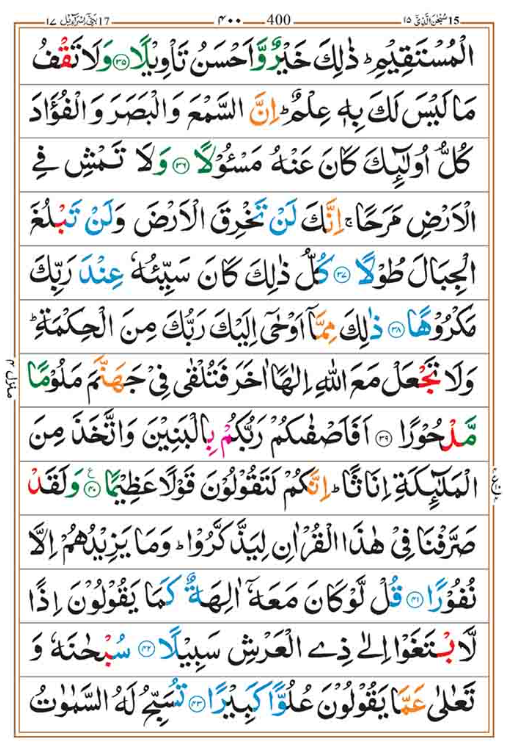 15 سُبْحٰنَ الَّذِیْۤ ١٥ ٤٠٠ 400 17 بَنِیْۤ اِسْرَآءِیْل ١٧
الْمُسْتَقِیْمِؕ ذٰلِكَ خَیْرٌ وَّاَحْسَنُ تَاْوِیْلًا ۝۳۵ وَلَا تَقْفُ
مَا لَیْسَ لَكَ بِهٖ عِلْمٌؕ اِنَّ السَّمْعَ وَالْبَصَرَ وَالْفُؤَادَ
كُلُّ اُولٰٓىِٕكَ كَانَ عَنْهُ مَسْـُٔوْلًا ۝۳۶ وَلَا تَمْشِ فِی
الْاَرْضِ مَرَحًاۚ اِنَّكَ لَنْ تَخْرِقَ الْاَرْضَ وَلَنْ تَبْلُغَ
الْجِبَالَ طُوْلًا ۝۳۷ كُلُّ ذٰلِكَ كَانَ سَیِّئُهٗ عِنْدَ رَبِّكَ
مَكْرُوْهًا ۝۳۸ ذٰلِكَ مِمَّاۤ اَوْحٰۤی اِلَیْكَ رَبُّكَ مِنَ الْحِكْمَةِؕ
وَلَا تَجْعَلْ مَعَ اللّٰهِ اِلٰهًا اٰخَرَ فَتُلْقٰی فِیْ جَهَنَّمَ مَلُوْمًا
مَّدْحُوْرًا ۝۳۹ اَفَاَصْفٰىكُمْ رَبُّكُمْ بِالْبَنِیْنَ وَاتَّخَذَ مِنَ
الْمَلٰٓىِٕكَةِ اِنَاثًاؕ اِنَّكُمْ لَتَقُوْلُوْنَ قَوْلًا عَظِیْمًا ۝۴۰ ع وَلَقَدْ
صَرَّفْنَا فِیْ هٰذَا الْقُرْاٰنِ لِیَذَّكَّرُوْاؕ وَمَا یَزِیْدُهُمْ اِلَّا
نُفُوْرًا ۝۴۱ قُلْ لَّوْ كَانَ مَعَهٗۤ اٰلِهَةٌ كَمَا یَقُوْلُوْنَ اِذًا
لَّابْتَغَوْا اِلٰی ذِی الْعَرْشِ سَبِیْلًا ۝۴۲ سُبْحٰنَهٗ وَ
تَعٰلٰی عَمَّا یَقُوْلُوْنَ عُلُوًّا كَبِیْرًا ۝۴۳ تُسَبِّحُ لَهُ السَّمٰوٰتُ
منزل ٤